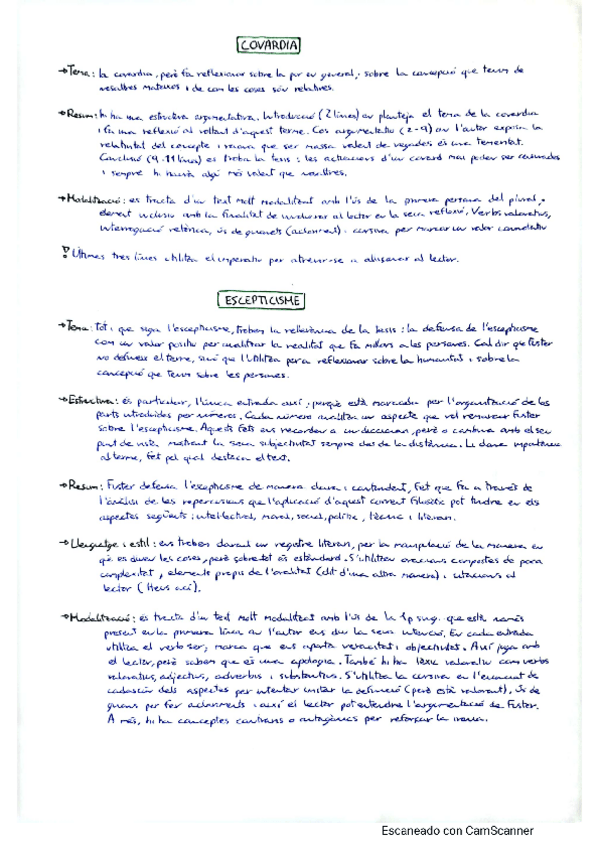 COVARDIA
→Tema: la covardia, però fa reflexionar sobre la por en general, i sobre la concepció que tenim de
nosaltres mateixos i de com les coses són relatives.
→Resum: hi ha una estructura argumentativa. Introducció (2 línies) on planteja el tema de la covardia
i fa una reflexió al voltant d'aquest terme. Cos argumentatiu (2-9) on l'autor exposa la
relativitat del concepte i raona que ser massa valent de vegades és una temeritat.
Conclusió (9-11 línies) es troba la tesis: les actuacions d'un covard mai poden ser
i sempre hi haurà algú més valent que nosaltres.
→Modalització: és tracta d'un text molt modalitzat amb l'ús de la primera persona del plural,
inclusiu amb la finalitat d'involucrar al lector en la seua reflexió. Verbs valoratius,
interrogació retòrica, ús de guionets (aclariment) i cursiva per marcar un valor connotatiu
! Últimes tres línies utilitza el imperatiu per atrevir-se a al lector.
ESCEPTICISME
→Tema: Tot i que siga l'escepticisme, trobem la rellevància de la tesis: la defensa de l'escepticisme
com un valor positiu per analitzar la realitat que fa millors a les persones. Cal dir que Fuster
no defineix el terme, sinó que l'utilitza per a reflexionar sobre la humanitat i sobre la
concepció que tenim sobre les persones.
→Estructura: és particular, l'única entrada així, perquè està marcada per l'organització de les
parts introduïdes per números. Cada número analitza un aspecte que vol remarcar Fuster
sobre l'escepticisme. Aquests fets ens recorden a un diccionari, però o continua amb el seu
punt de vista matisant la seua subjectivitat sempre des de la distància. Li dona importància
al terme, fet pel qual destaca el text.
→Resum: Fuster defensa l'escepticisme de manera clara i contundent, fet que fa a través de
l'anàlisi de les repercussions que l'aplicació d'aquest corrent filosòfic pot tindre en els
aspectes següents: intel·lectual, moral, social, polític, i literari.
→Llenguatge i estil: ens trobem davant un registre literari, per la manipulació de la manera en
què es diuen les coses, però sobretot és estàndard. S'utilitzen oracions compostes de poca
complexitat, elements propis de l'oralitat (dit d'una altra manera) i al
lector (Heus ací).
→Modalització: és tracta d'un text molt modalitzat amb l'ús de la 1p sing. que està només
present en la primera línia on l'autor ens diu la seua intenció. En cada entrada
utilitza el verb ser, marca que ens aporta veracitat i objectivitat. Així juga amb
el lector, però sabem que és una apologia. També hi ha lèxic valoratiu com verbs
valoratius, adjectius, adverbis i substantius. S'utilitza la cursiva en l'enunciat de
cadascún dels aspectes per intentar imitar la definició (però està valorant). Ús de
guions per fer aclariments i així el lector pot entendre l'argumentació de Fuster.
A més, hi ha conceptes contraris o antagònics per reforçar la ironia.
Escaneado con CamScanner